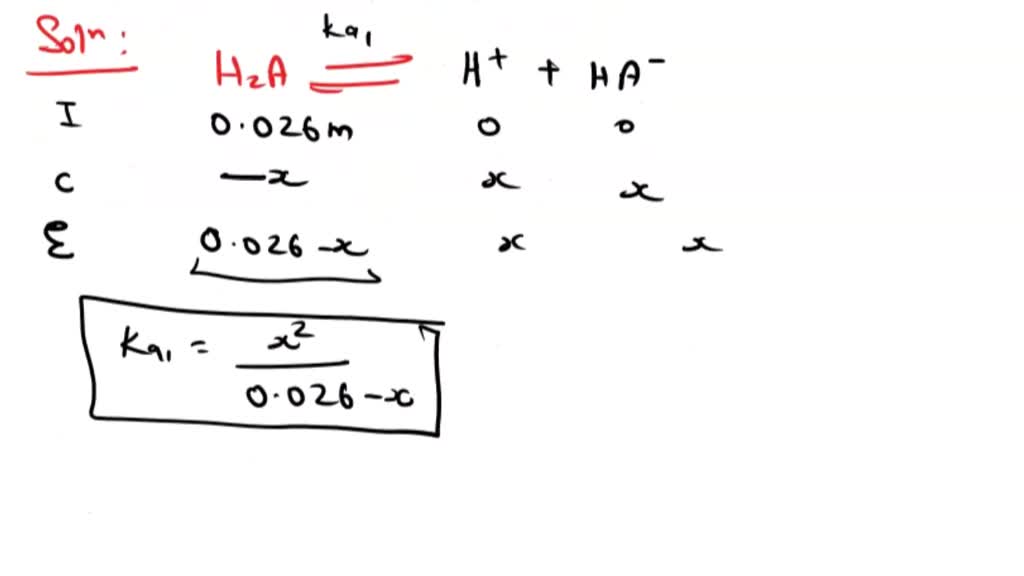 Solⁿ:
Ka₁
H₂A ⇌ H⁺ + HA⁻
I 0.026m 0 0
C -x x x
E 0.026-x x x
Ka₁ = x² / 0.026-x